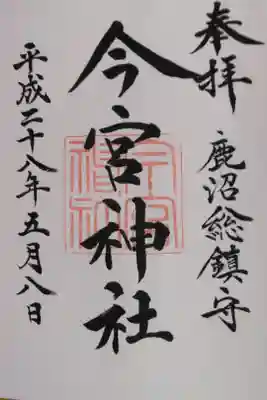 奉拝
鹿沼総鎮守
今宮神社
平成二十八年五月八日